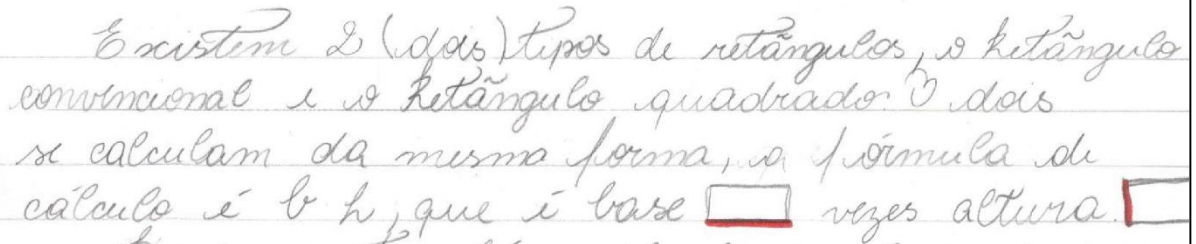 Existem 2 (dois) tipos de retângulos, o Retângulo
convencional e o Retângulo quadrado. O dois
se calculam da mesma forma, a fórmula de
cálculo é b h, que é base vezes altura.